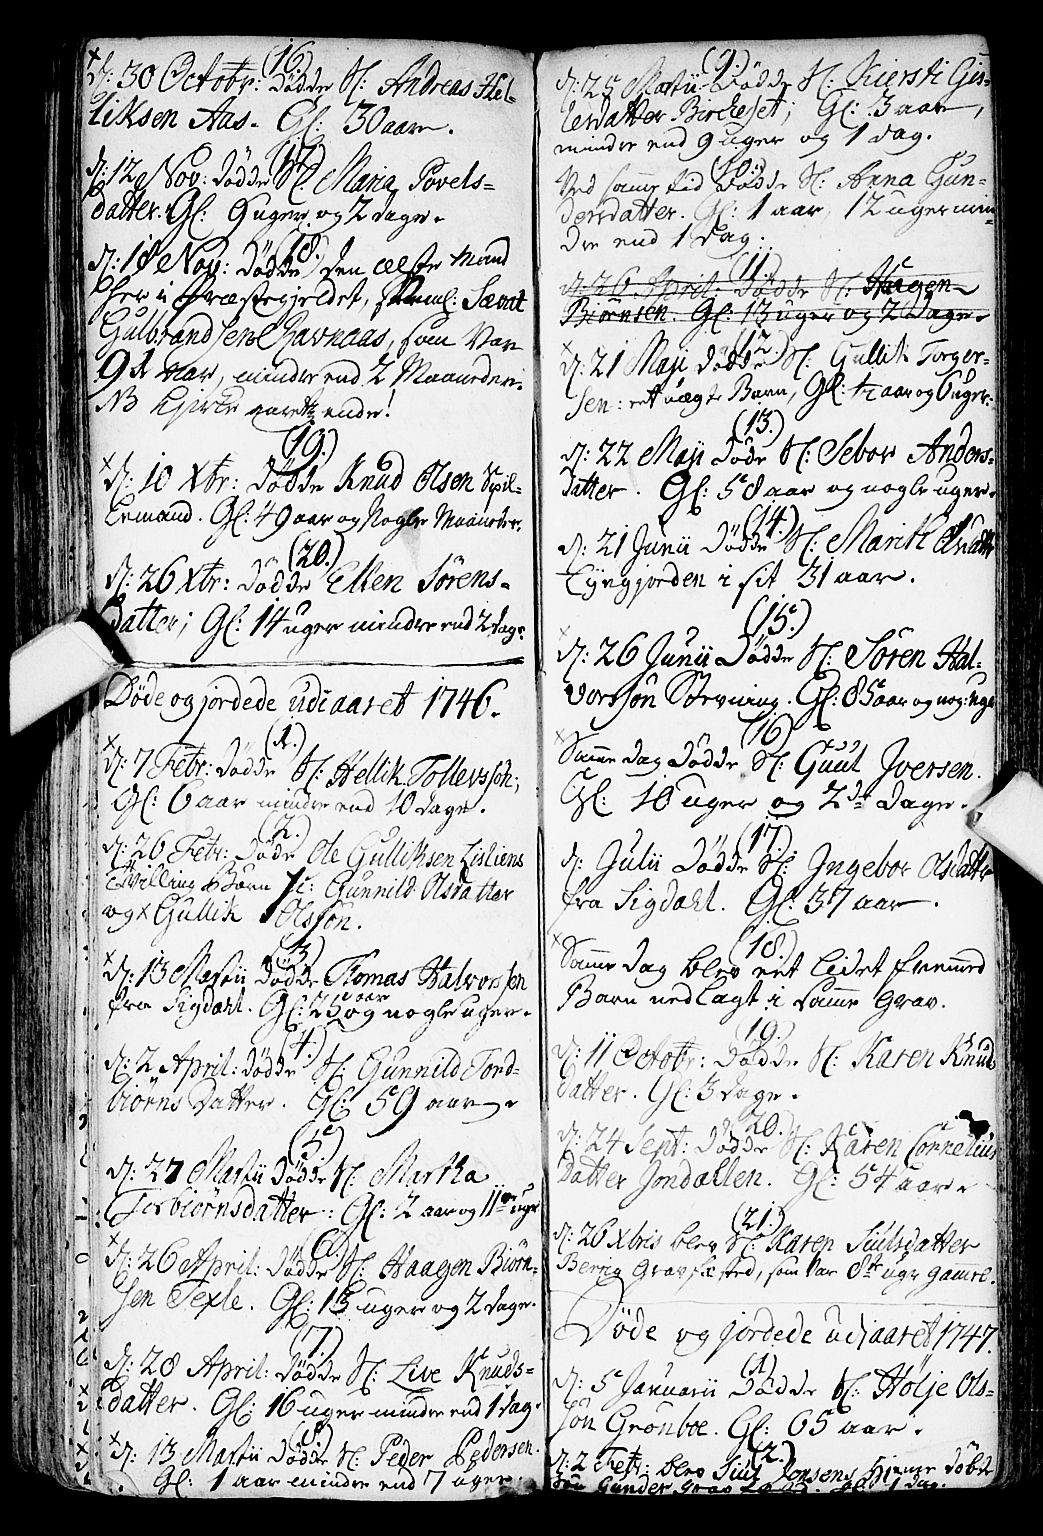 (16.)
D: 30 Octobr: Døde N: Andreas Hel-
liksen Aas. Gl: 30 aar.
(17)
D: 12 Nov: Døde N: Maria Povels-
datter. Gl: 9 uger og 2 dage.
(18.)
D: 18 Nov: Døde den ælste Mand
her i Præstegjeldet, Sævat
Gulbrandsen Ravnaas, som Var
91 aar, mindre end 2 Maaneder.
NB Kirke aarets ende!
(19.)
D: 10 Xbr: Døde Knud Olsen Spil-
lemand. Gl: 49 aar og Nogle Maaneder.
(20.)
D: 26 Xbr: Døde Ellen Sørens-
datter; Gl: 14 uger mindre end 2 dage.
Døde og jordede udi aaret 1746.
(1.)
D: 7 Febr: Døde N: Hellik Tollevssøn;
Gl: 6 aar mindre end 10 dage.
(2.)
D: 26 Febr: Døde Ole Gulliksen Lisliens
Tvilling Børn: Gunnild Olsdatter
og Gullik Olssøn.
(3.)
D: 13 Martii Døde Tomas Halvorsen
fra Sigdahl. Gl: 25 aar og nogle uger.
(4.)
D: 2 April: Døde N: Gunnild Tord-
biørns Datter. Gl: 59 aar.
(5.)
D: 27 Martii Døde N: Martha
Torbiørnsdatter: Gl: 2 aar og 11 uger
(6.)
D: 26 April: Døde N: Haagen Biørn-
sen Texle. Gl: 13 uger og 2 dage.
(7.)
D: 28 April: Døde N: Live Knuds-
datter. Gl: 16 uger mindre end 1 dag.
(8.)
D: 13 Martii Døde N: Peder Pedersen.
Gl: 1 aar mindre end 7 uger.
(9.)
D: 25 Martii Døde N: Kiersti Gis-
lersdatter Birkeset; Gl: 3 aar,
mindre end 9 uger og 1 dag.
(10.)
Ved samme tid Døde N: Anna Gun-
dersdatter. Gl: 1 aar, 12 uger min-
dre end 1 dag.
(11.)
D: 26 April: Døde N: Haagen
Biørnsen. Gl: 13 uger og 2 Dage.
(12)
D: 21 Maji Døde N: Gullik Torger-
sen: eet uægte Barn, Gl: 1/2 aar og 6 uger.
(13.)
D: 22 Maji Døde N: Sebor Anders-
datter. Gl: 58 aar og nogle uger.
(14.)
D: 21 Junii Døde N: Marith Olsdatter
Lyngjorden i sit 31 aar.
(15.)
D: 26 Junii Døde N: Søren Hal-
vorssøn Sørvning. Gl: 85 aar og nog: uger
(16)
Samme dag Døde N: Guul Iversen.
Gl: 10 uger og 2 dage.
(17.)
D: Julii Døde N: Ingebor Olsdatter
fra Sigdahl. Gl: 37 aar.
(18.)
Samme dag blev eet lidet fremmed
Barn nedlagt i samme Grav.
(19.)
D: 11 Octobr: Døde N: Karen Knuds
datter. Gl: 3 dage.
(20.)
D: 24 Sept: Døde N: Karen Cornelius
Datter Jondallen. Gl: 54 aar.
(21.)
D: 26 Xbris blev N: Karen Siulsdatter
Berrig Gravfæsted, som var 8te uger gammel.
Døde og jordede udi aaret 1747.
(1)
D: 5 Januarii Døde N: Holje Ols-
søn Grønboe. Gl: 65 aar.
(2.)
D: 2 Febr: blev Siul Jensens Hiemme døbt
Søn Gunder Grav Gl: 1 dag.